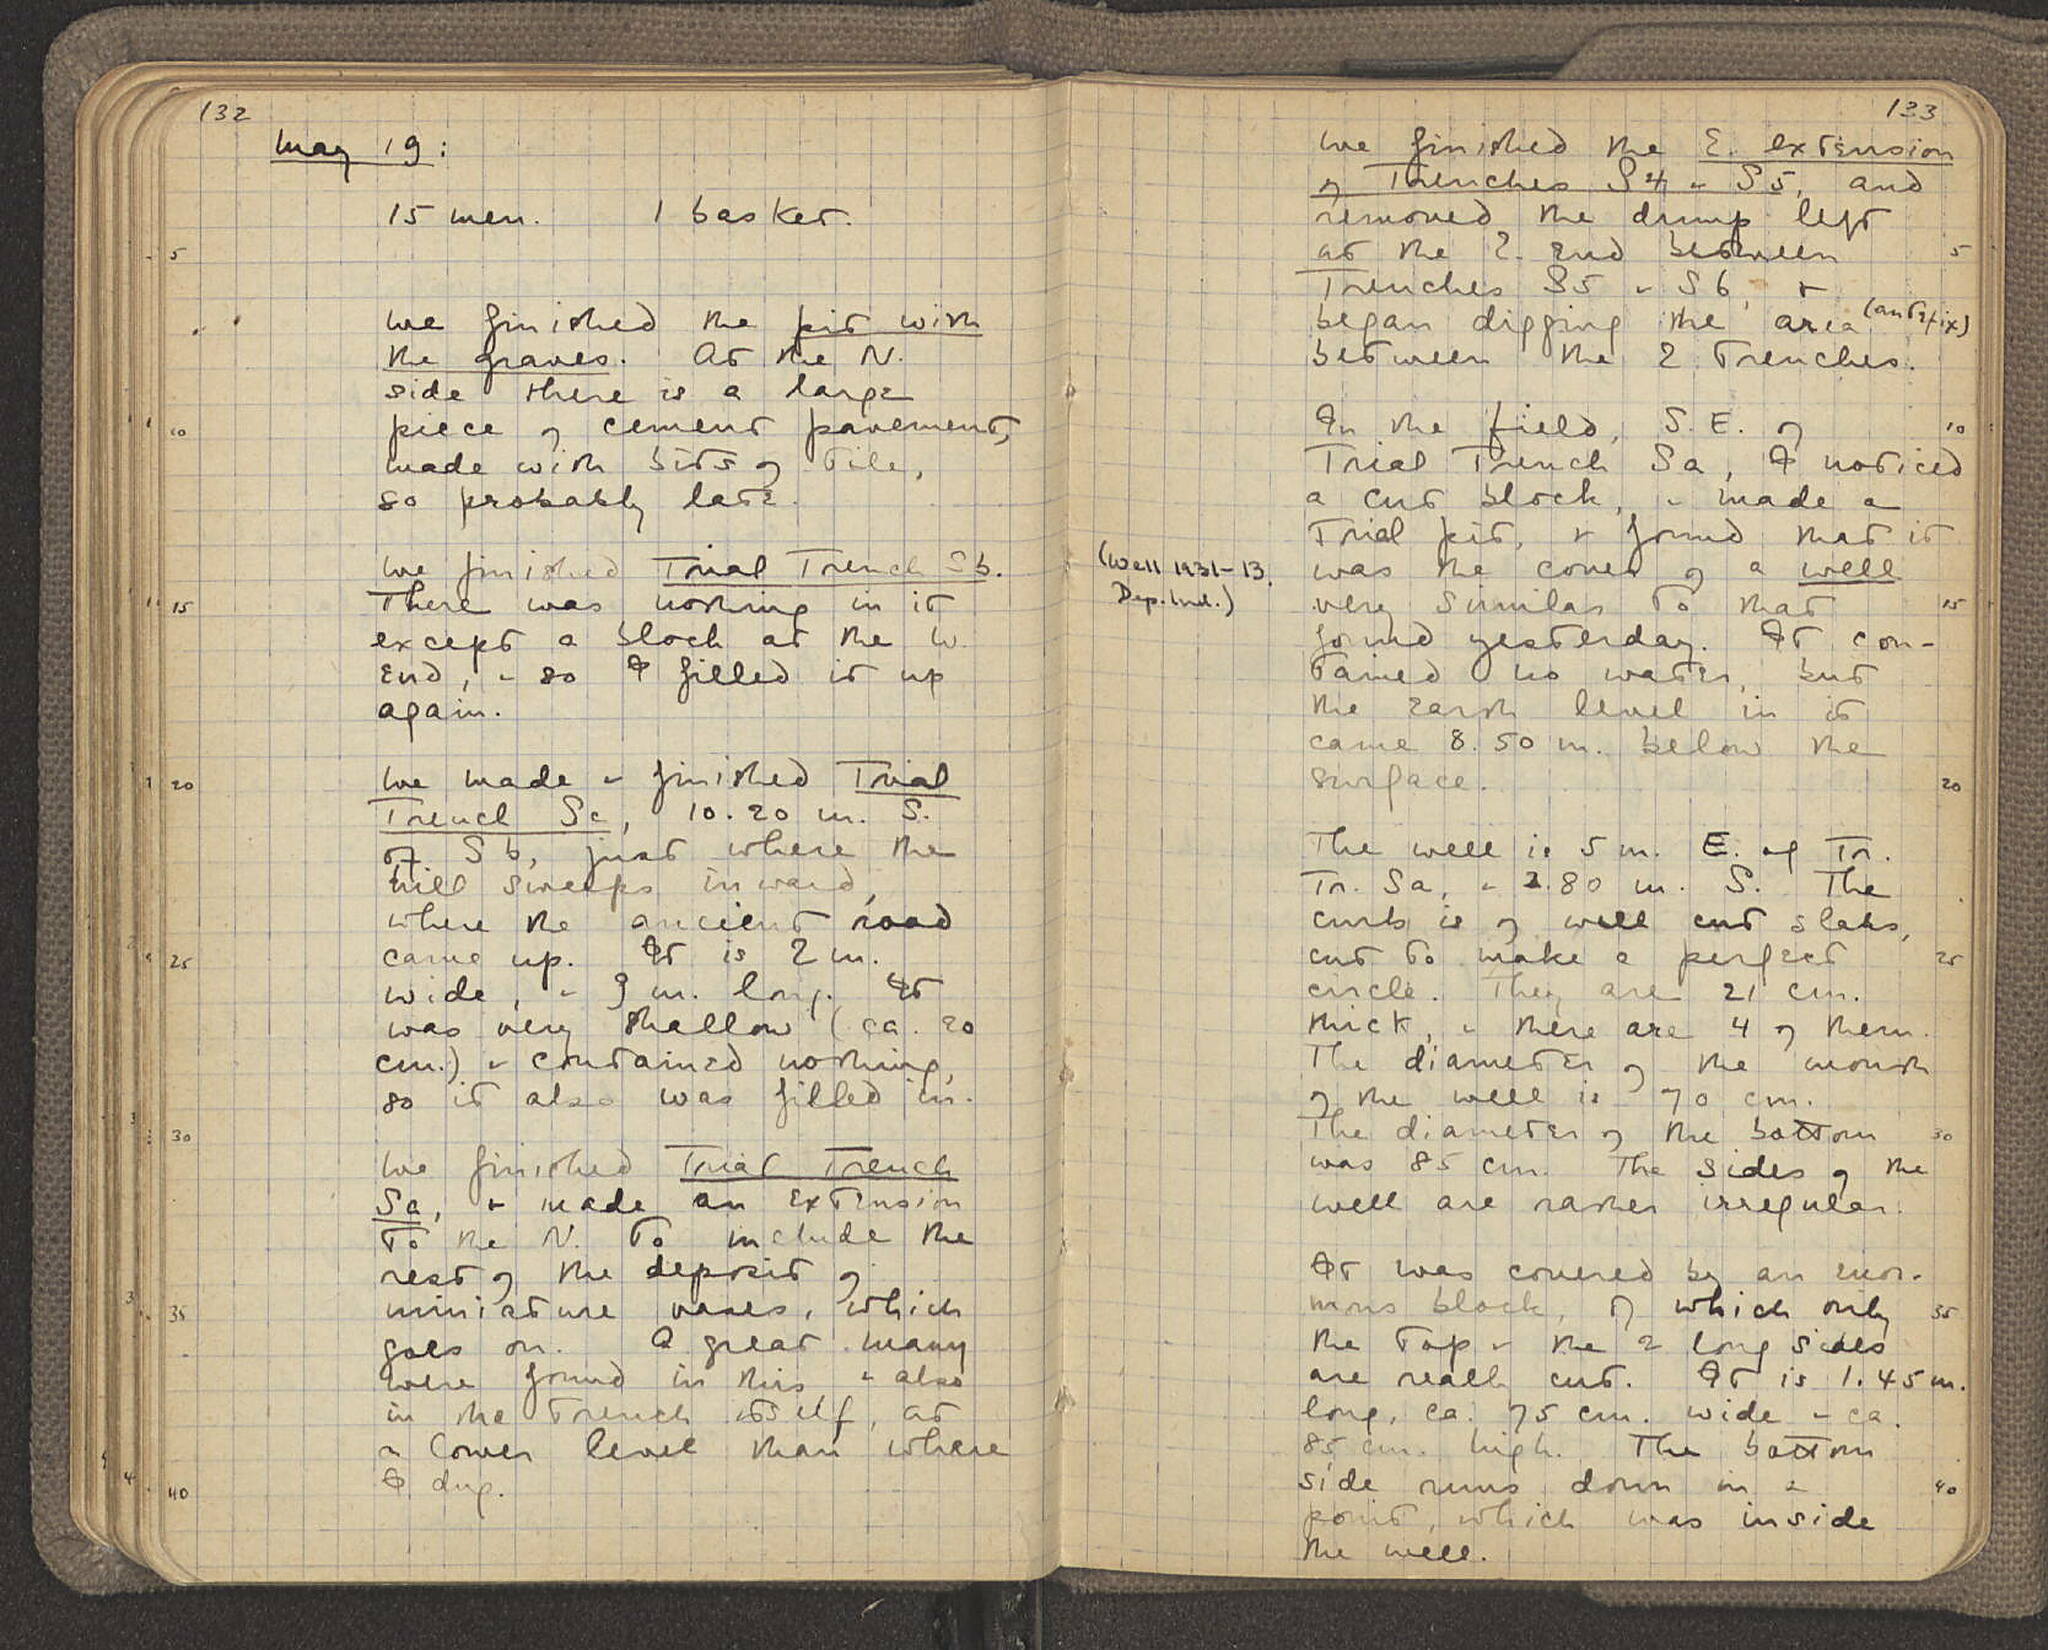 132
May 19:
15 men. 1 basket.
5
We finished the pit with
the graves. At the N.
side there is a large
piece of cement pavement,
10
made with bits of tile,
so probably late.
We finished Trial Trench Sb.
There was nothing in it
15
except a block at the W.
End, & so I filled it up
again.
We made & finished Trial
20
Trench Sc, 10.20 m. S.
of Sb, just where the
hill sweeps inward,
where the ancient road
came up. It is 2 m.
25
wide, & 9 m. long. It
was very shallow (ca. 20
cm.) & contained nothing,
so it also was filled in.
30
We finished Trial Trench
Sa, & made an extension
to the N. to include the
rest of the deposit of
miniature vases, which
35
goes on. A great many
were found in this, & also
in the trench itself, at
a lower level than where
I dug.
40
133
We finished the E. extension
of Trenches S4 & S5, and
removed the dump left
at the E. End between
5
Trenches S5 & S6, &
began digging the area (antefix)
between the 2 trenches.
In the field, S.E. of
10
Trial Trench Sa, I noticed
a cut block, & made a
Trial pit, & found that it
was the cover of a well
(Well 1931-13.
Dep. Ind.)
very similar to that
15
found yesterday. It con-
tained no water, but
the Earth level in it
came 8.50 m. below the
surface.
20
The well is 5 m. E. of Tr.
Tr. Sa, & 2.80 m. S. The
curb is of well cut slabs,
cut to make a perfect
25
circle. They are 21 cm.
thick, & there are 4 of them.
The diameter of the mouth
of the well is 70 cm.
The diameter of the bottom
30
was 85 cm. The sides of the
well are rather irregular.
It was covered by an enor-
mous block, of which only
35
the top & the 2 long sides
are really cut. It is 1.45 m.
long, ca. 75 cm. wide & ca.
85 cm. high. The bottom
side runs down in a
40
point, which was inside
the well.